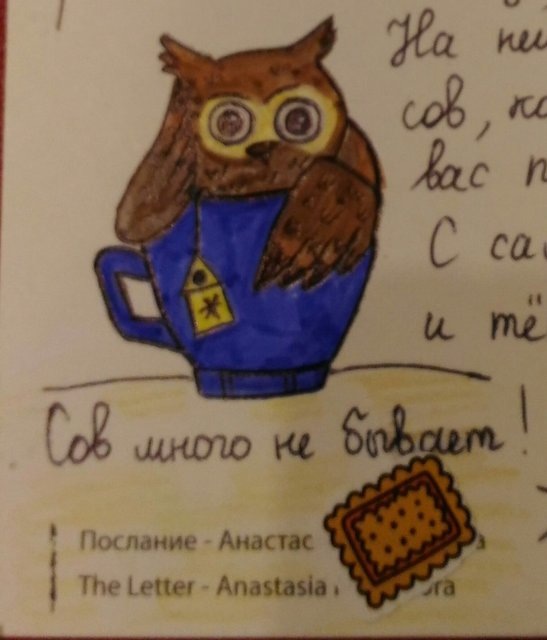 На
сов,
вас
С
и
Сов много не бывает!
Послание - Анастас
The Letter - Anastasia